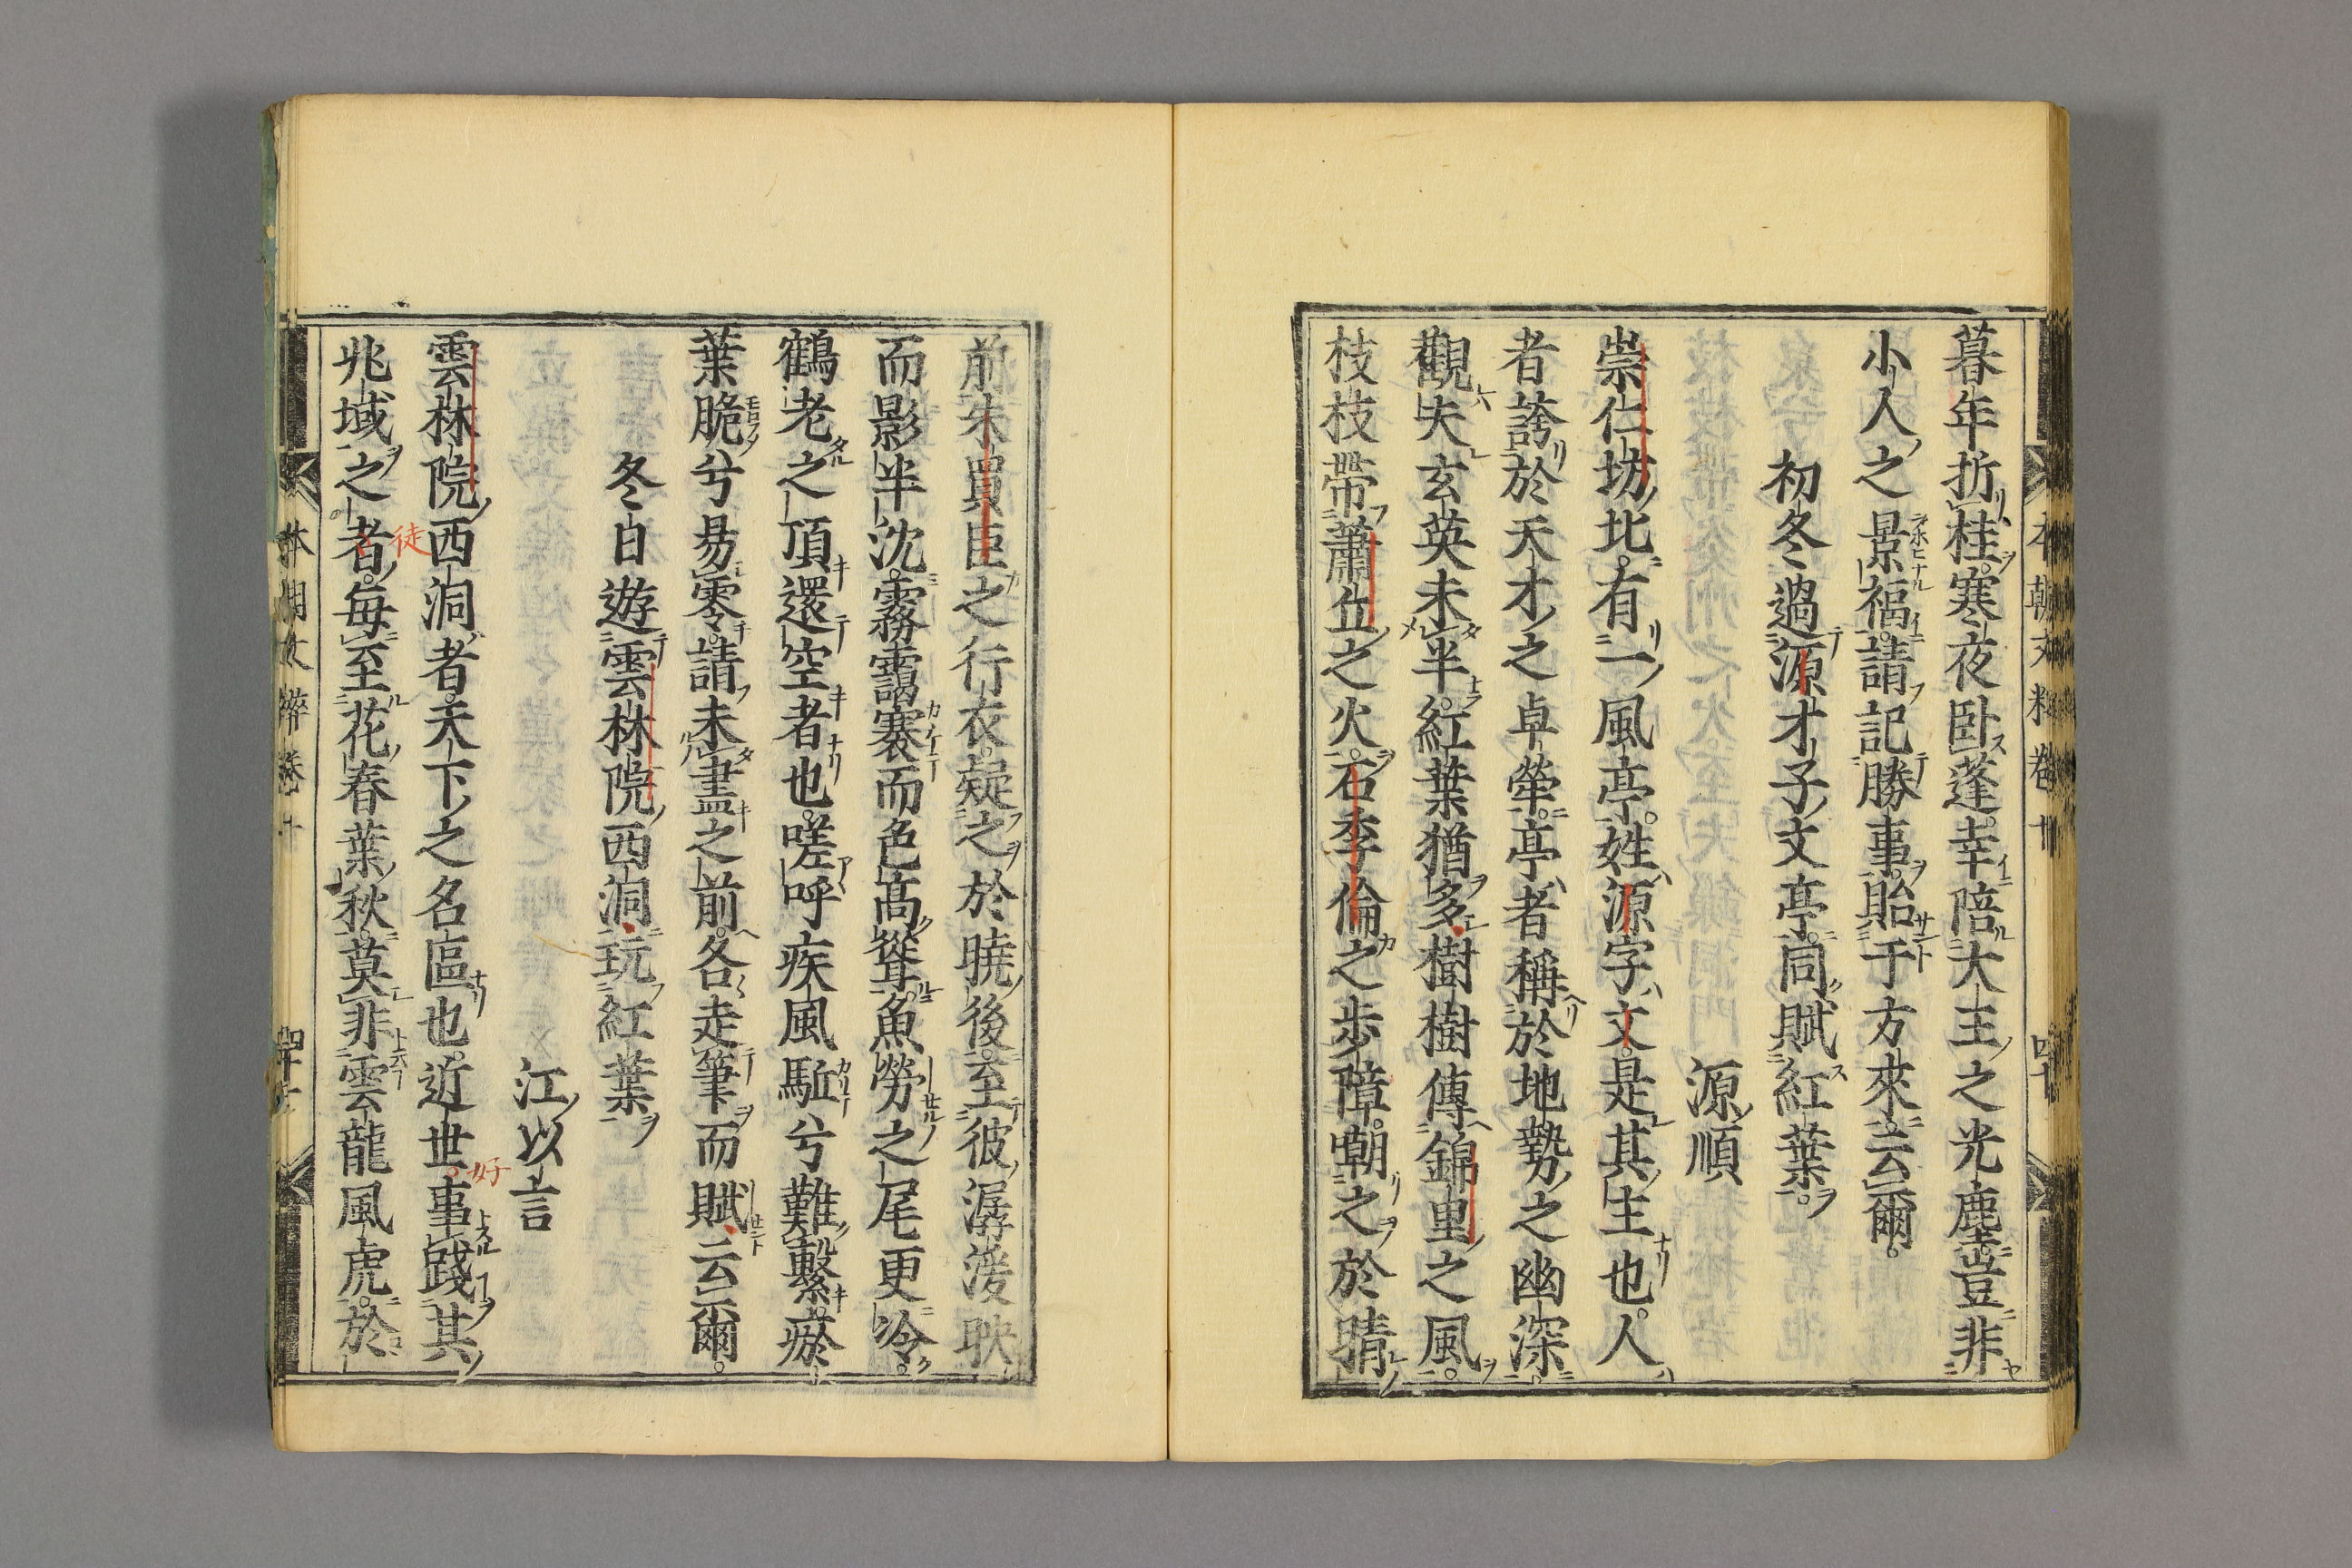 暮年折桂寒夜卧蓬幸陪大王之光塵豈非
小人之景福請記勝事貽于方來云爾
初冬過源才子文亭同賦紅葉
源順
崇仁坊北有一風亭姓源字文是其主也人
者誇於天才之卓犖亭者稱於地勢之幽深
觀夫玄英未半紅葉猶多樹樹傳錦里之風
枝枝帶蕭丘之火石季倫之步障嘲之於晴
前朱買臣之行衣疑之於曉後至彼潺湲映
而影半沈霧靄褰而色高聳魚勞之尾更冷
鶴老之頂還空者也嗟呼疾風駈兮難繫瘀
葉脆兮易零請未盡之前各走筆而賦云爾
冬日遊雲林院西洞玩紅葉
江以言
雲林院西洞者天下之名區也近世事踐其
兆域之者每至花春葉秋莫非雲龍風虎於
徒
好
本朝文粹卷十
四十